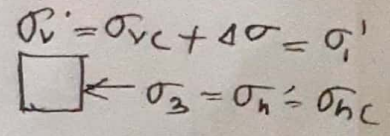 σᵥ' = σᵥc + Δσ = σ₁'
σ₃ = σₕ' = σₕc